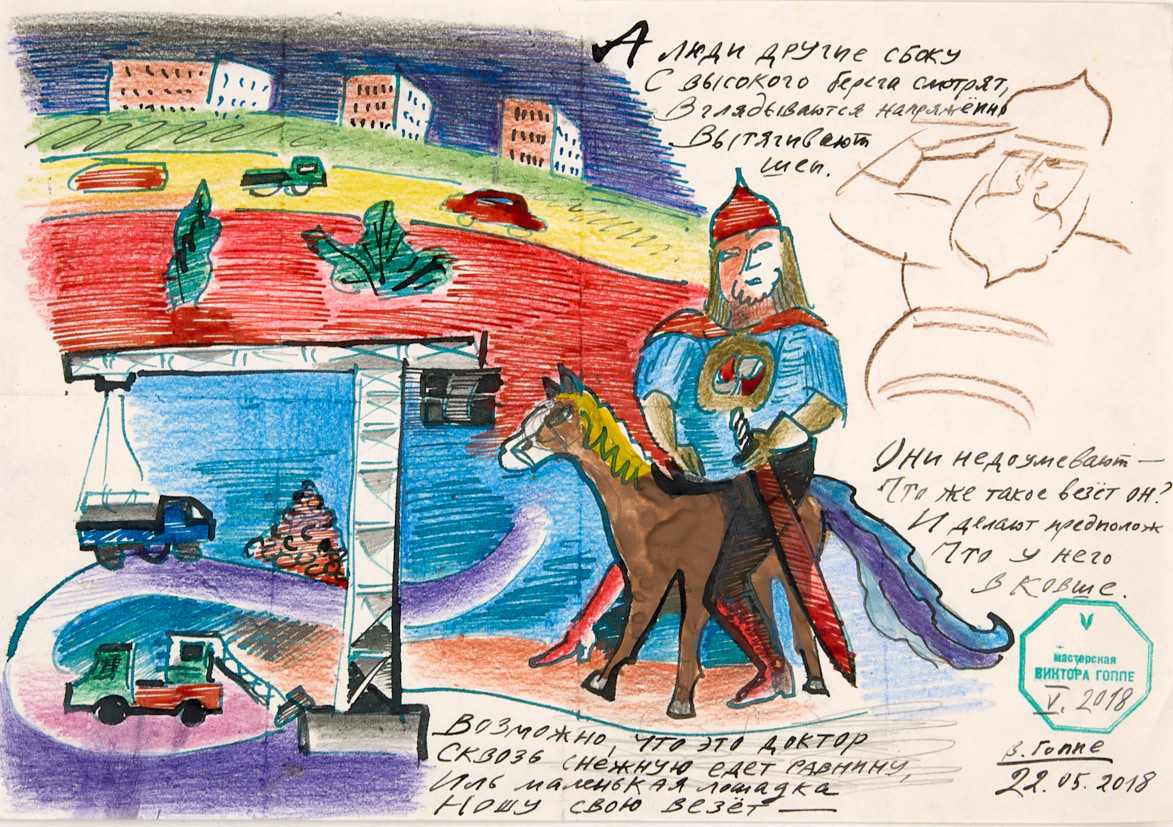 А люди другие сбоку
С высокого берега смотрят,
Вглядываются напряжённо
Вытягивают
шеи.
Они недоумевают —
Что же такое везёт он?
И делают предполож
Что у него
в ковше.
мастерская
ВИКТОРА ГОППЕ
V. 2018
В. Гоппе
22.05.2018
Возможно, что это доктор
Сквозь снежную едет равнину,
Иль маленькая лошадка
Ношу свою везёт —